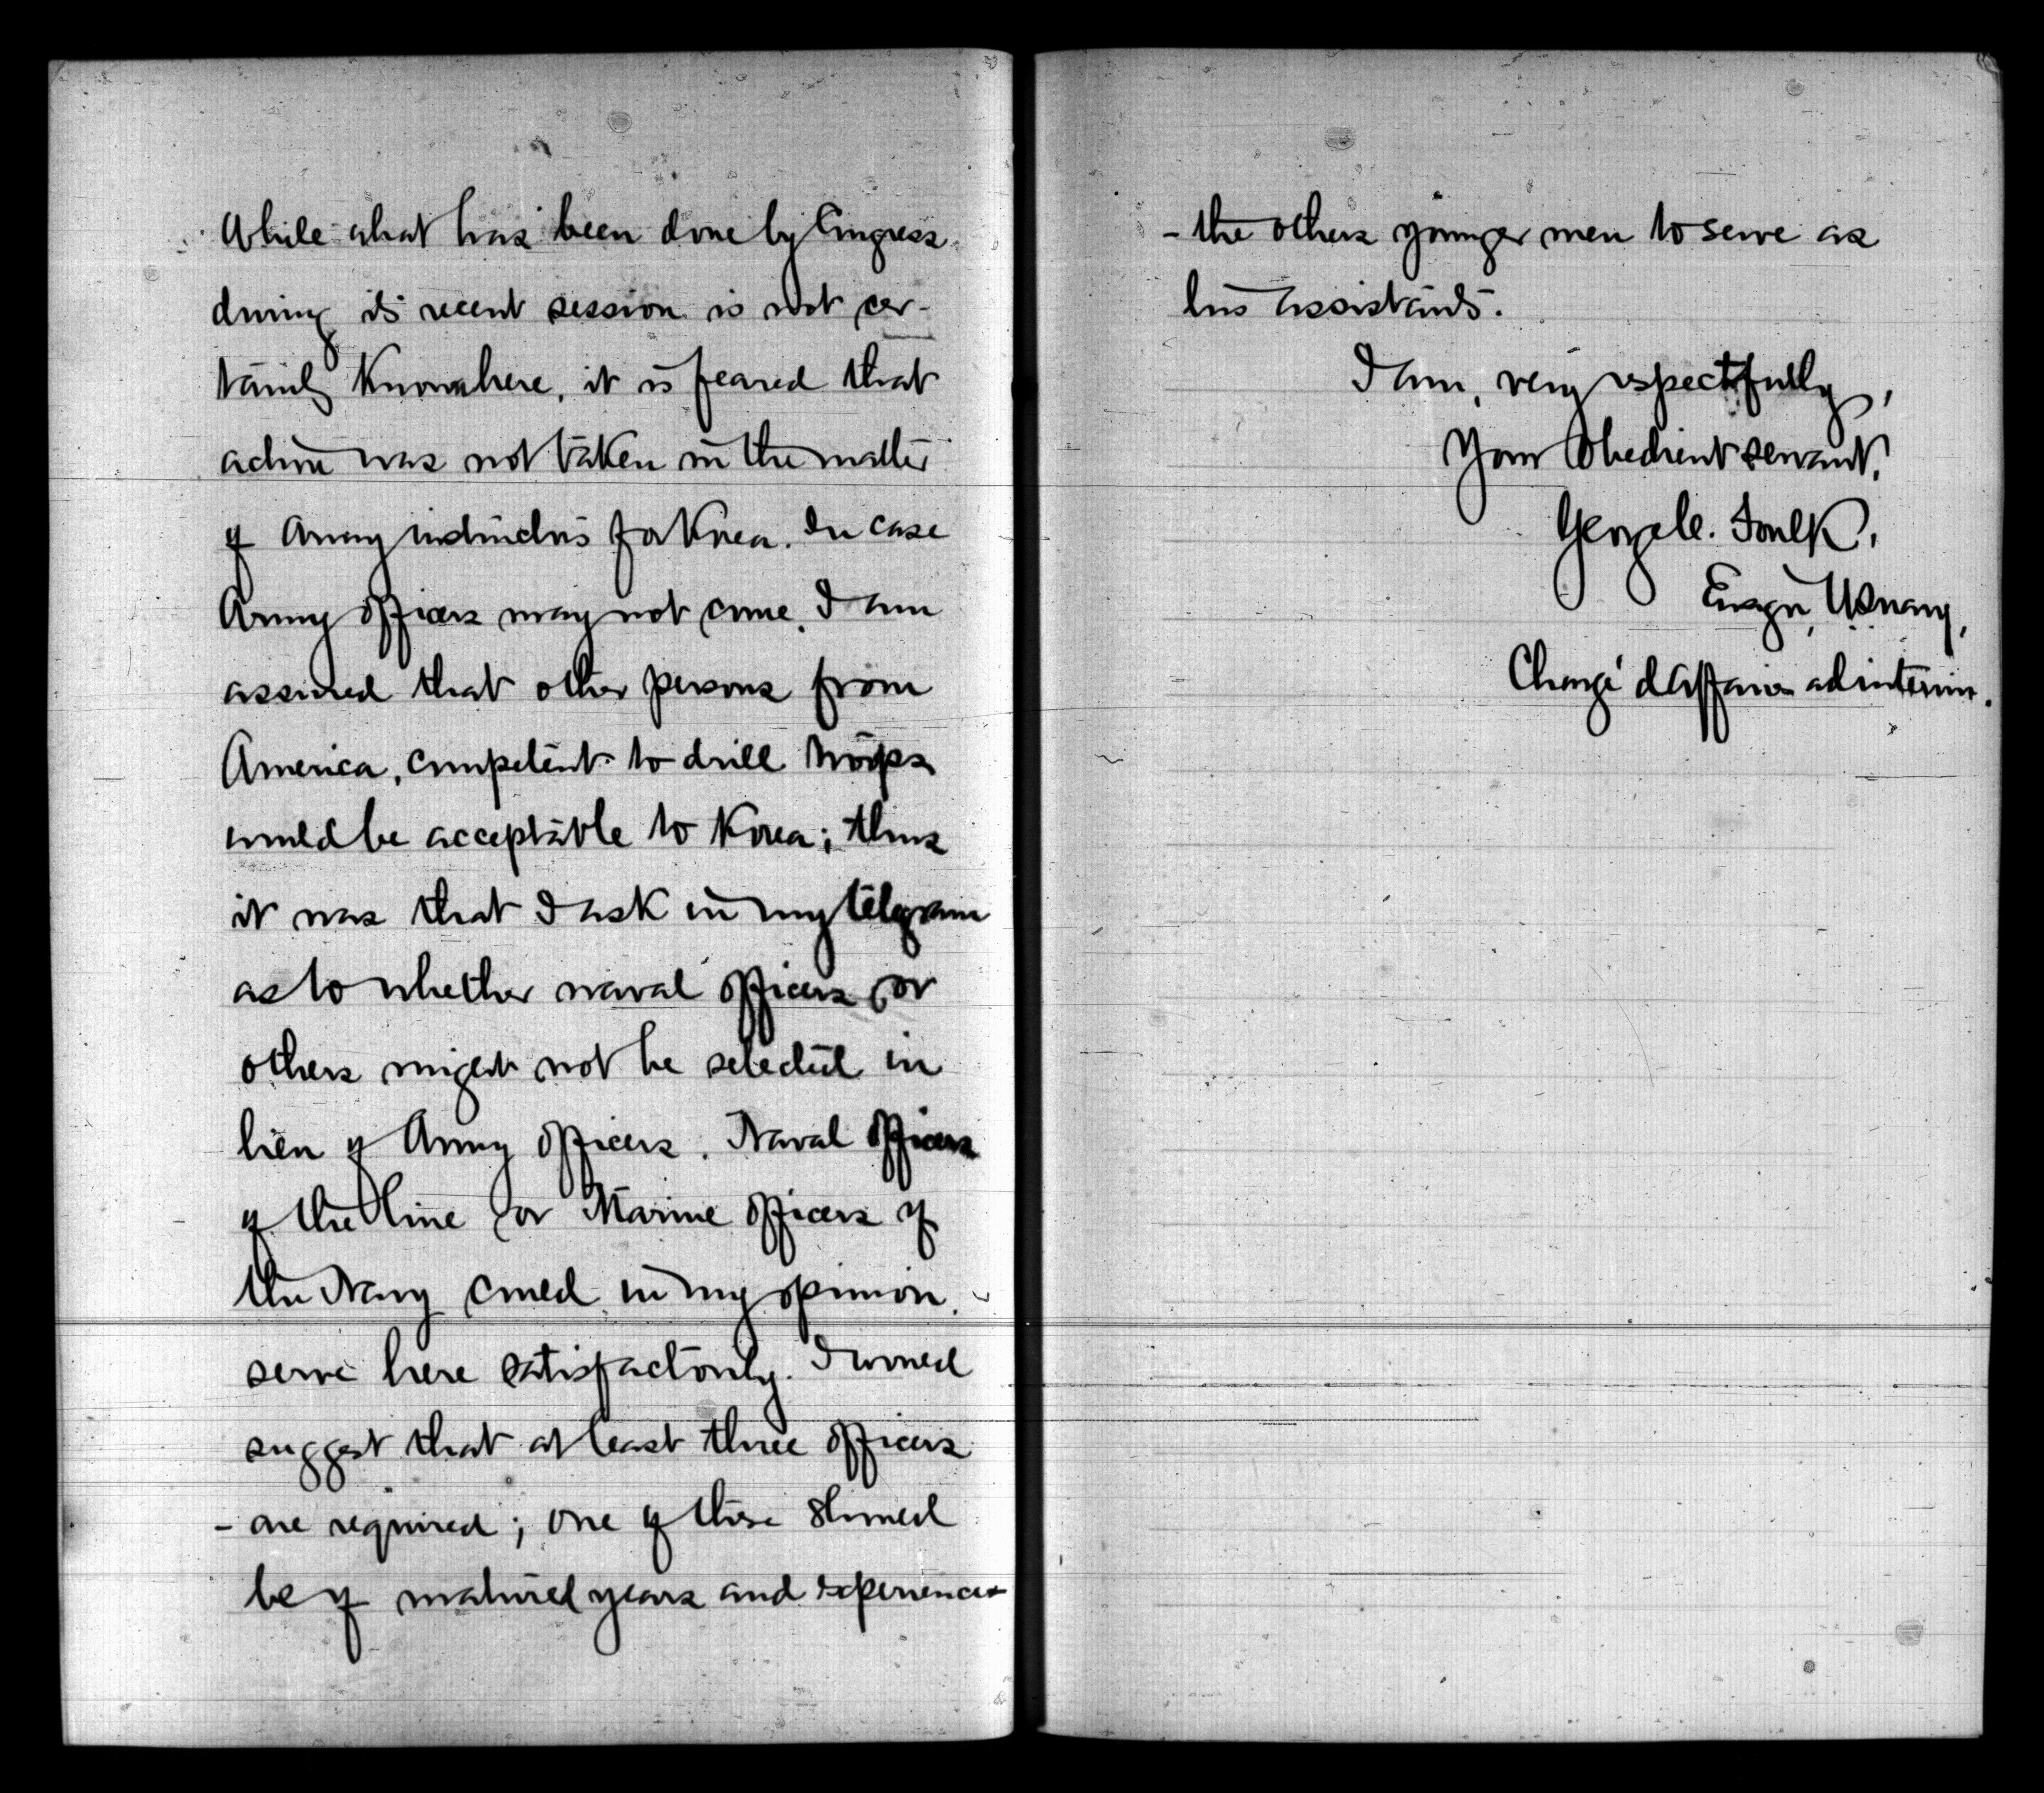 While what has been done by Congress
during its recent session is not cer-
tainly Known here, it is feared that
action was not taken in the matter
of Army instructors for Korea. In case
Army officers may not come, I am
assured that other persons from
America, competent to drill troops
would be acceptable to Korea; thus
it was that I ask in my telegram
as to whether naval officers or
others might not be selected in
lieu of Army officers. Naval officers
of the line or Marine officers of
the Navy could in my opinion
serve here satisfactorily. I would
suggest that at least three officers
- are required; one of these should
be of matured years and experience
- the others younger men to serve as
his assistants.
I am, very respectfully,
Your obedient servant,
George C. Foulk.
Ensign, US Navy,
Chargé d'Affaires ad interim.